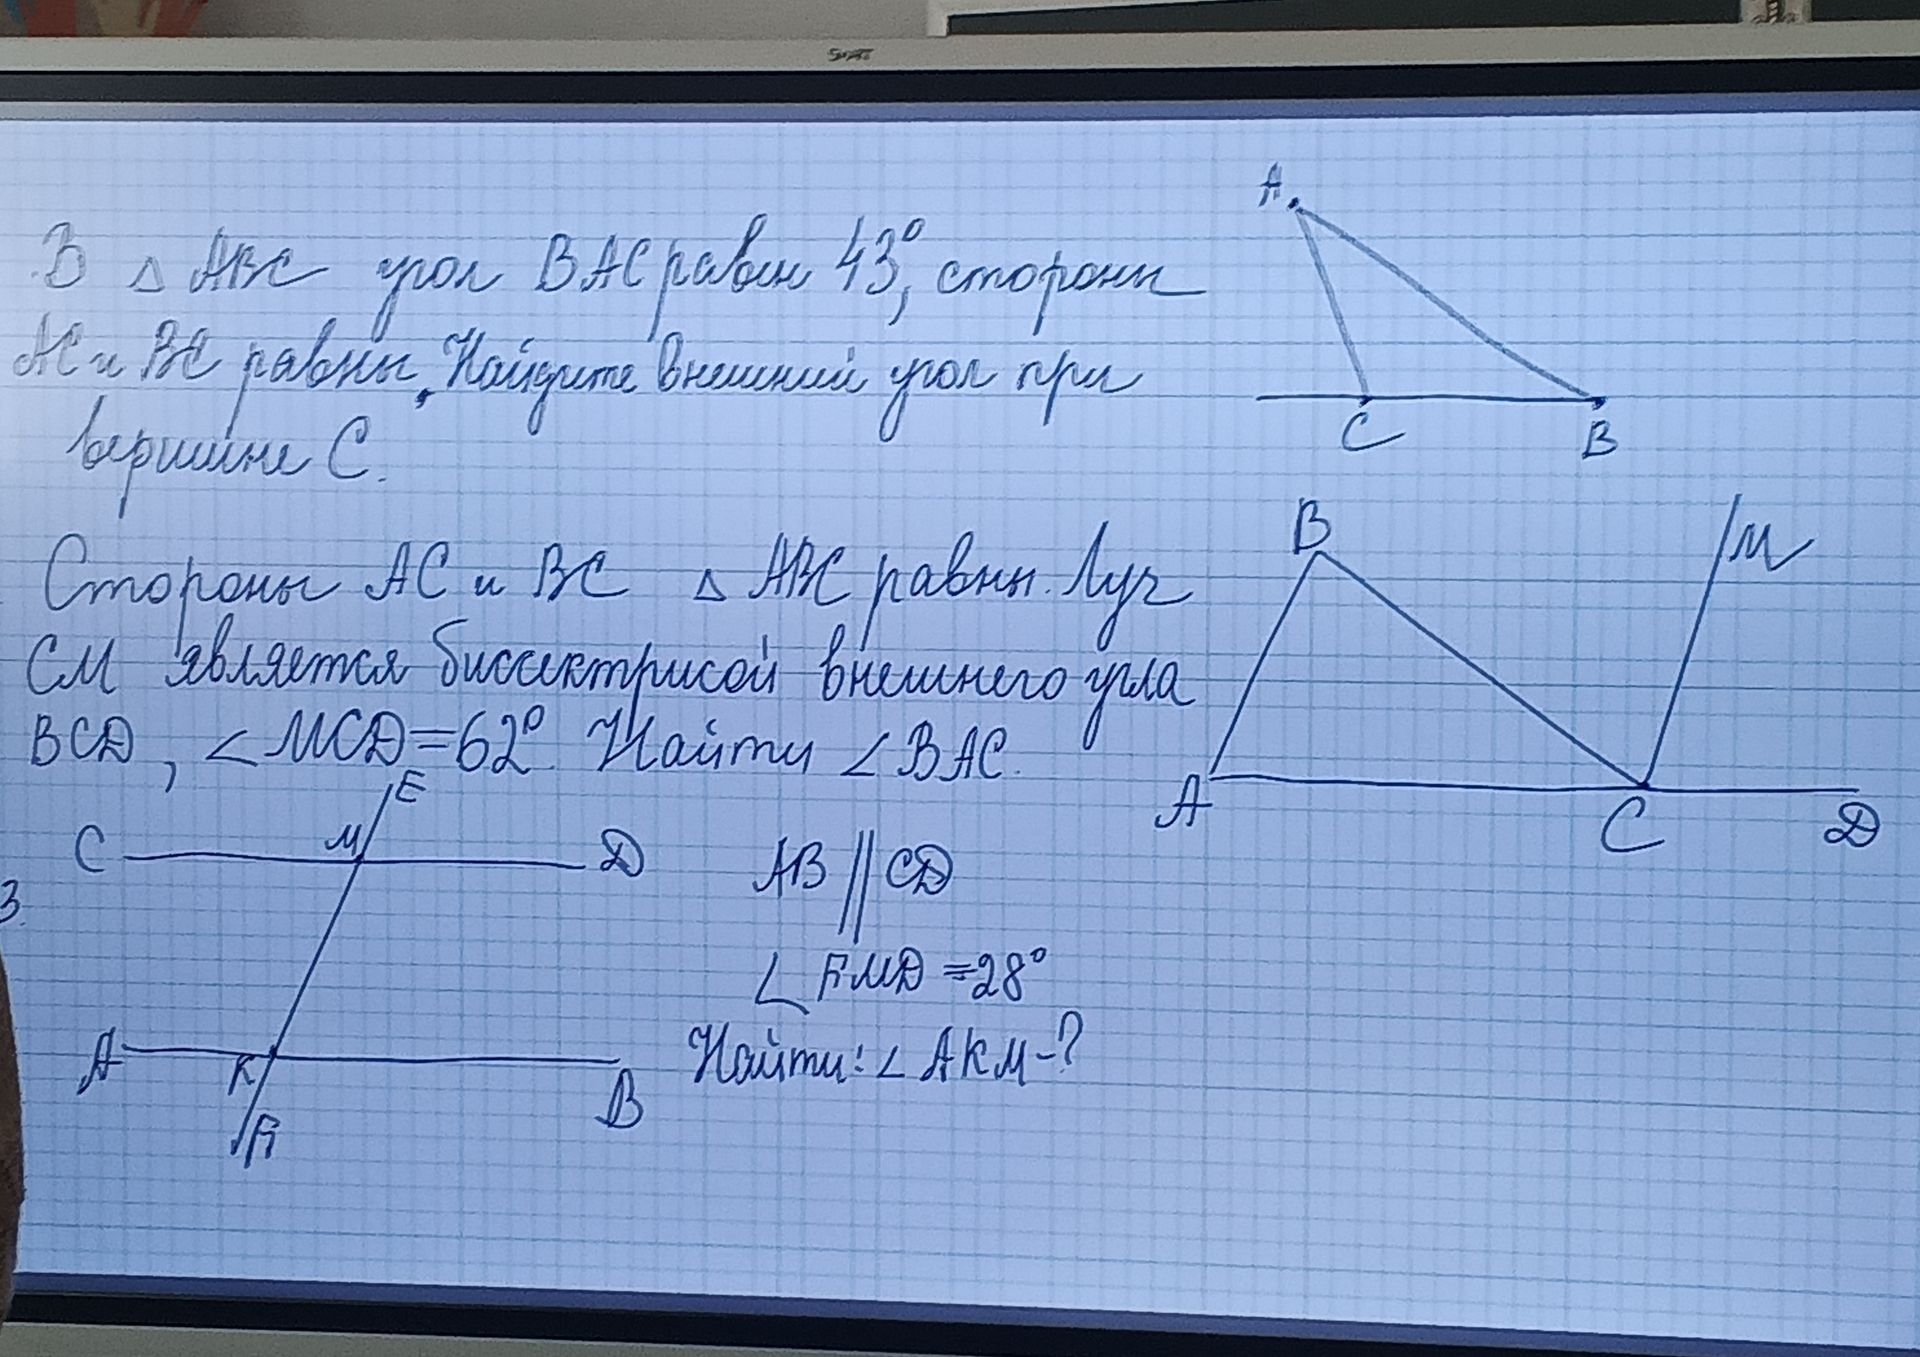 В △ ABC угол BAC равен 43°, стороны
AC и BC равны. Найдите внешний угол при
вершине C.
A
C
B
Стороны AC и BC △ ABC равны. Луч
CM является биссектрисой внешнего угла
BCD, ∠ MCD=62°. Найти ∠ BAC.
B
M
A
C
D
3.
E
C
M
D
A
K
B
F
AB || CD
∠ FMD =28°
Найти: ∠ AKM-?